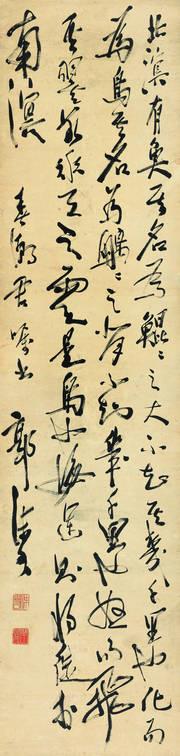 北溟有魚其名為鯤〻之大不知其幾千里也化而
為鳥其名為鵬〻之背不知幾千里也怒而飛
其翼若垂天之雲是鳥也海運則將徙於
南溟 春潮君嘱书 郭沫若